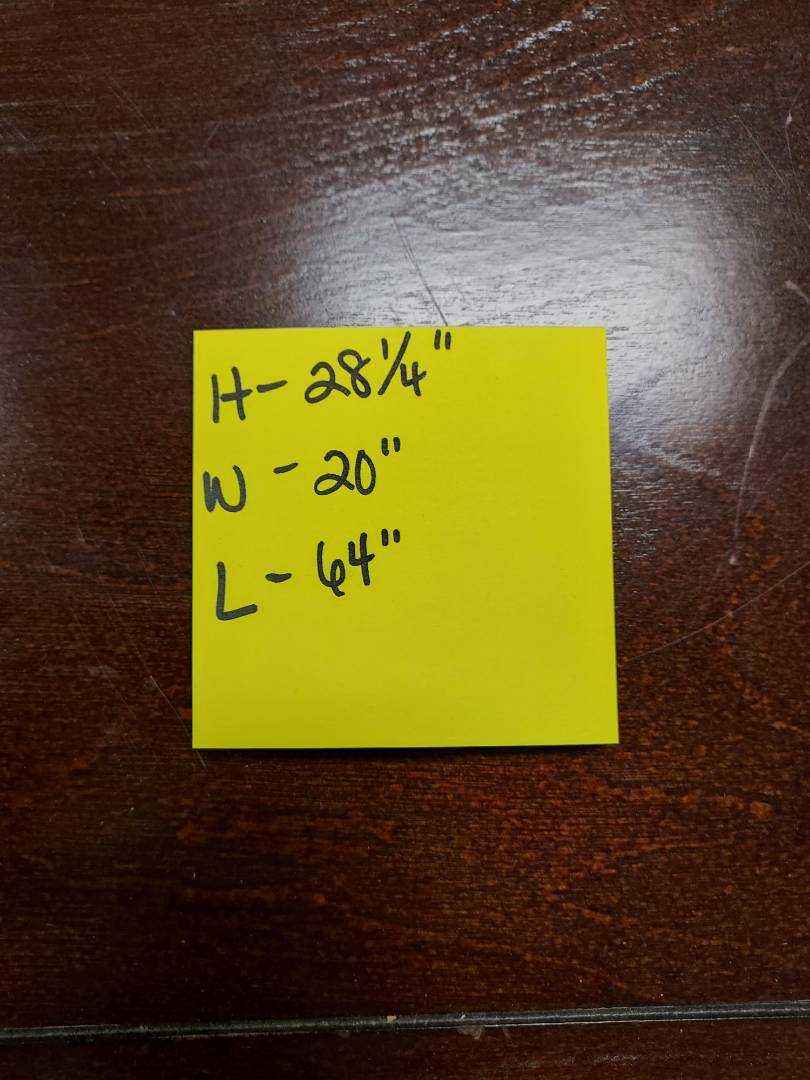 H- 28 1/4"
W - 20"
L - 64"